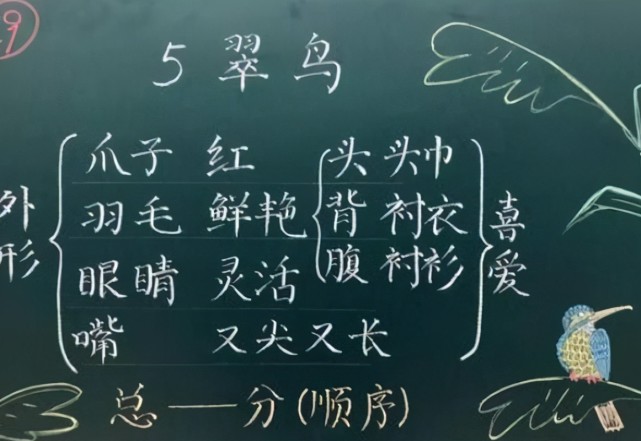 9
5 翠鸟
外形
爪子 红 头 头巾
羽毛 鲜艳 背 衬衣
眼睛 灵活 腹 衬衫
嘴 又尖又长
喜爱
总——分(顺序)